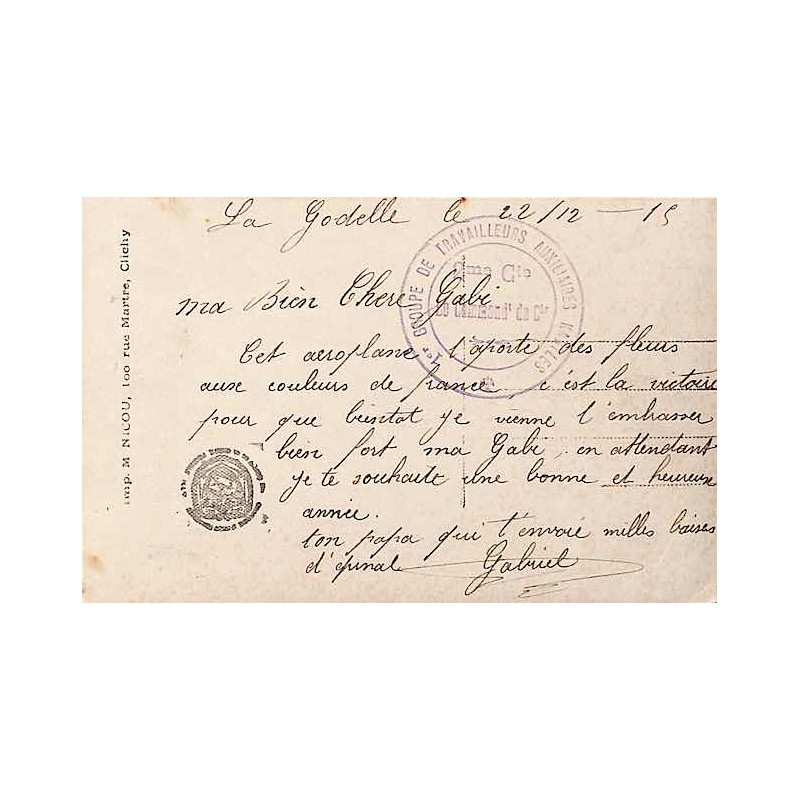 La Godelle le 22/12 - 15
ma Bien Chere Gabi
Cet aeroplane t'aporte des fleurs
aux couleurs de france, c'est la victoire
pour que bientot je vienne t'embrasser
bien fort ma Gabi, en attendant
je te souhaite une bonne et heureuse
année.
ton papa qui t'envoie milles baises
d'epinal Gabriel
1er GROUPE DE TRAVAILLEURS AUXILIAIRES
Cie
Le de Cie
Imp. M NICOU, 100 rue Martre, Clichy